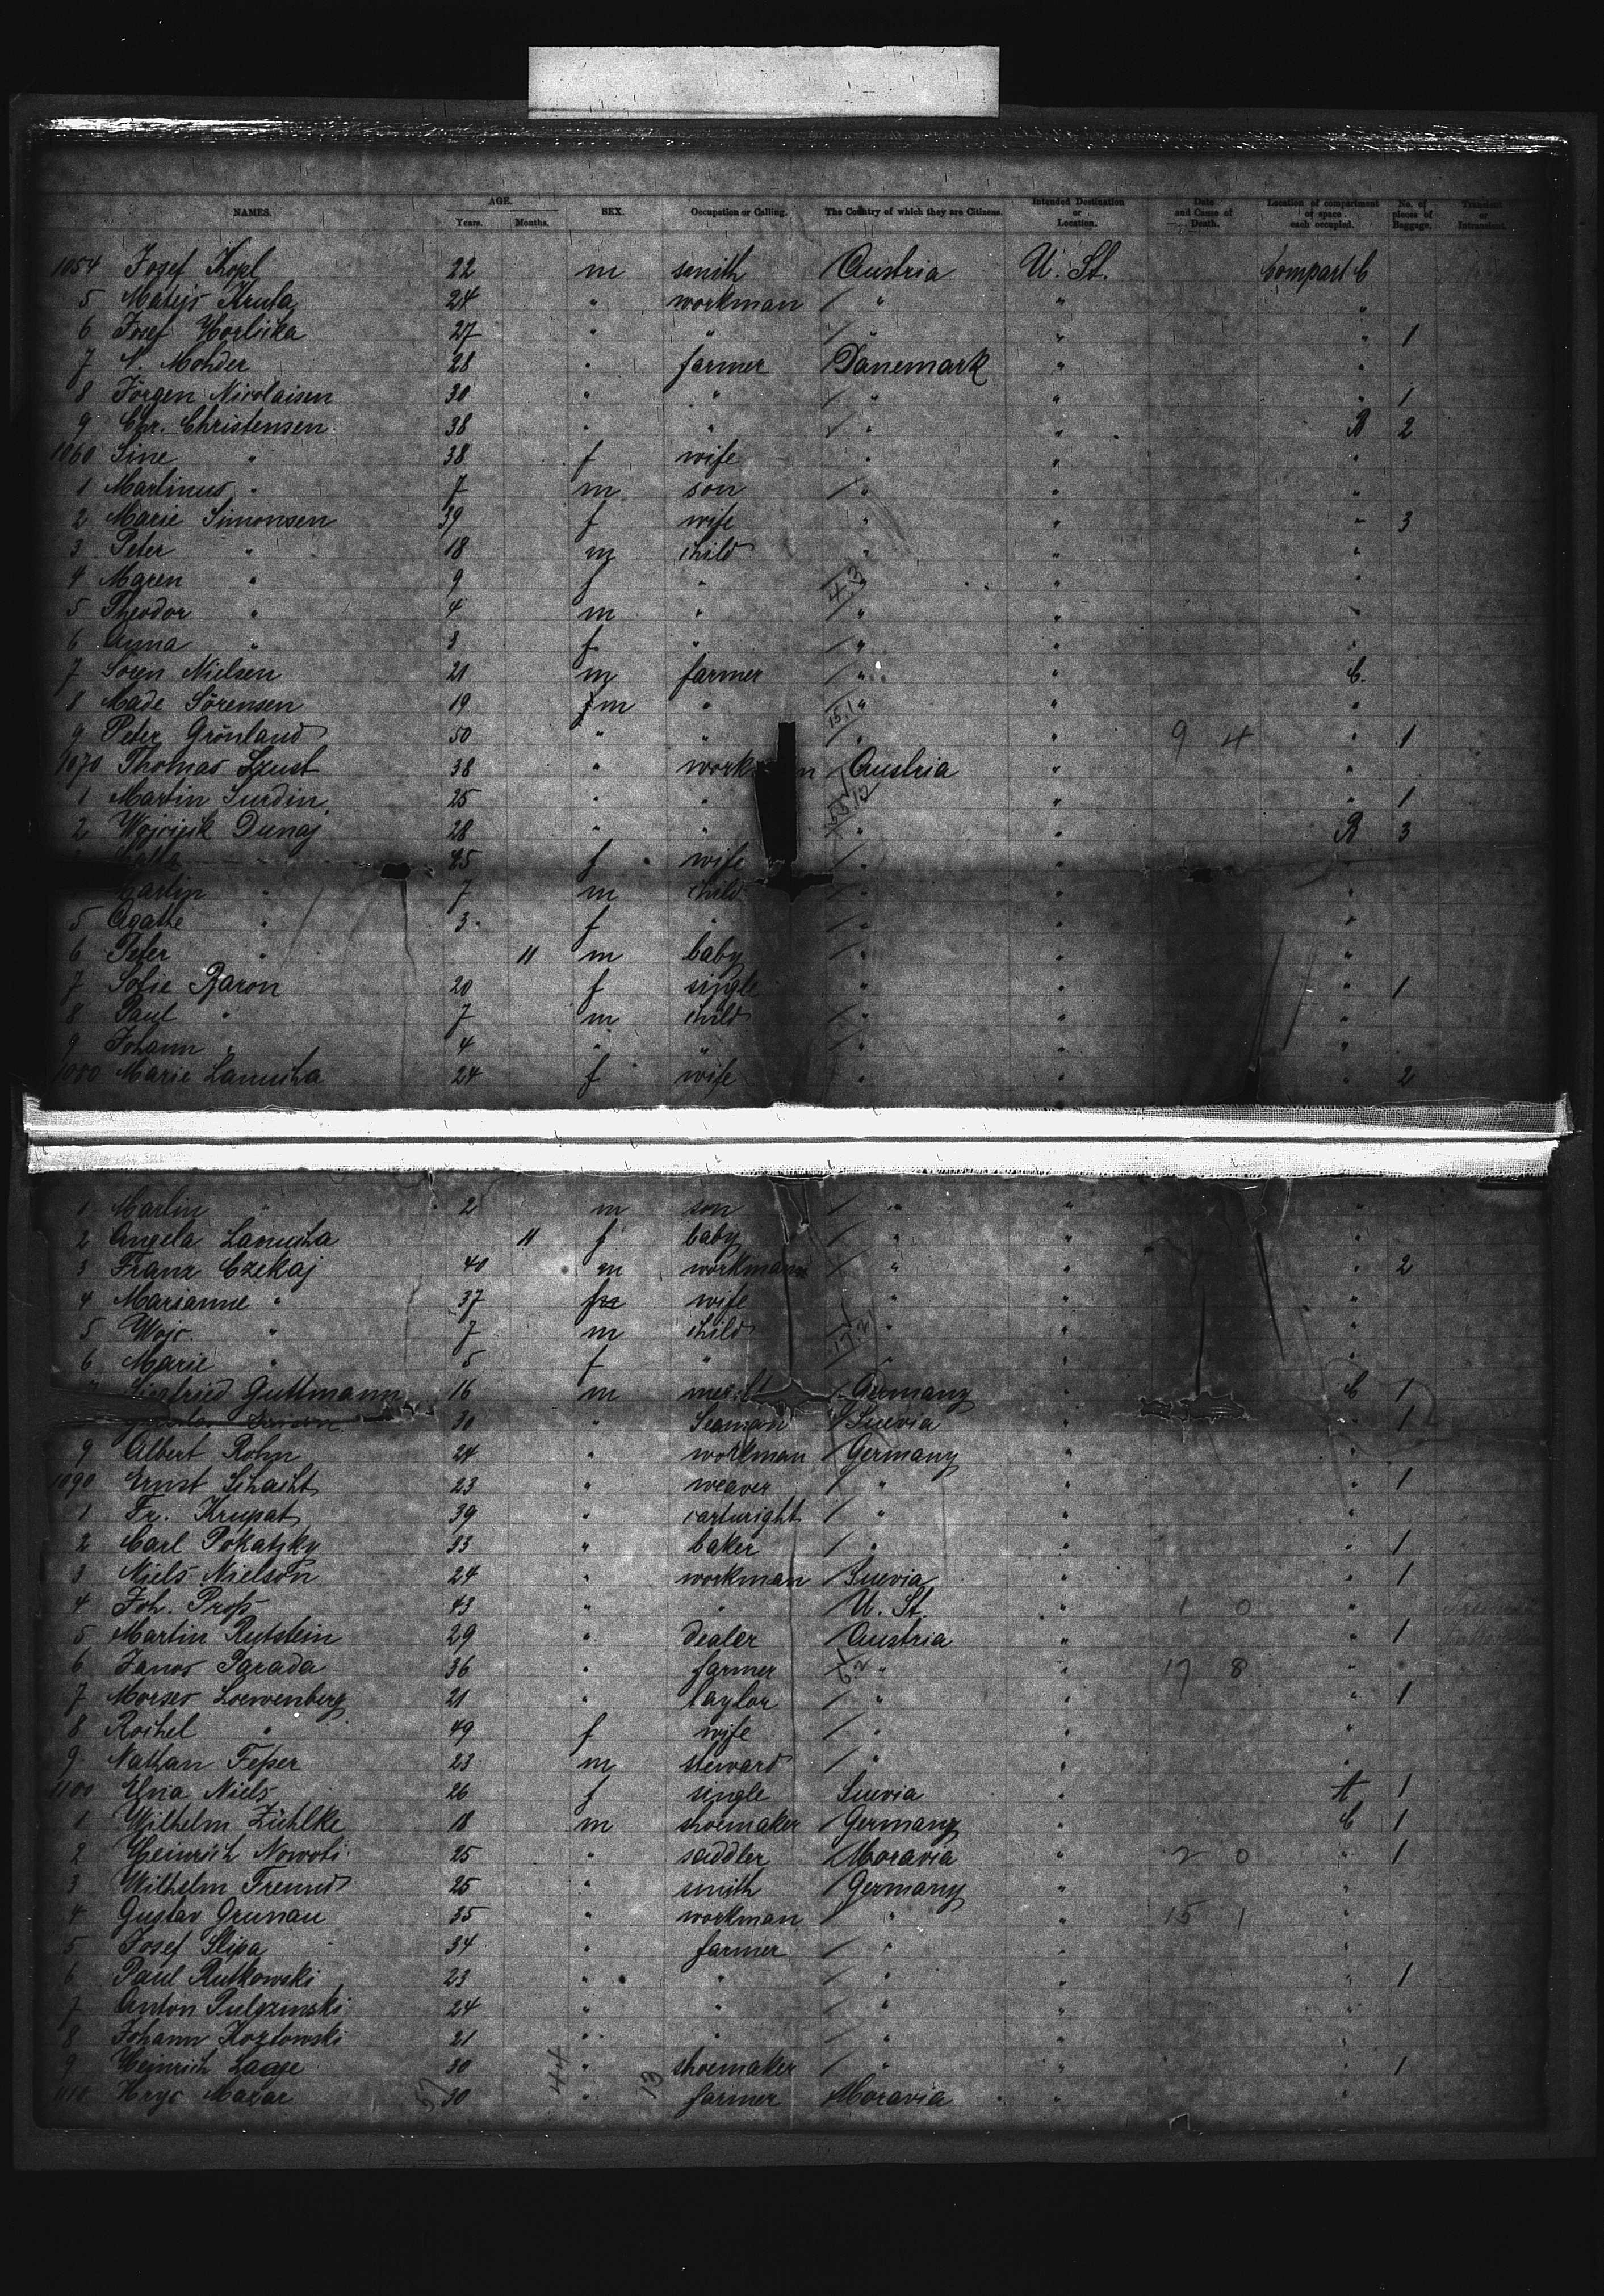 NAMES. AGE. Years. Months. SEX. Occupation or Calling. The Country of which they are Citizens. Intended Destination or Location. Date and Cause of Death. Location of compartment or space each occupied. No. of pieces of Baggage. Transient or Intransient.
1054 Josef Kopl 22 m smith Austria U. St. Compart C
5 Matejs Kruta 24 " workman " " "
6 Josef Horlicka 27 " " " " " 1
7 N. Mohder 28 " farmer Danemark " "
8 Jörgen Nicolaisen 30 " " " " " 1
9 Chr. Christensen 38 " " " " B 2
1060 Sine " 38 f wife " " "
1 Martinus " 7 m son " " "
2 Marie Simonsen 39 f wife " " " 3
3 Peter " 18 m child " " "
4 Maren " 9 f " " " "
5 Theodor " 4 m " " " "
6 Anna " 3 f " " " "
7 Soren Nielsen 21 m farmer " " C.
8 Made Sörensen 19 m " " " "
9 Peter Grönland 50 " " " " 9 4 " 1
1070 Thomas Szust 38 " work n Austria " "
1 Martin Surdin 25 " " " " 1
2 Wojciech Dunaj 28 " " " " B 3
25 f wife " " "
Martin " 7 m child " " "
5 Agathe " 3 f " " " "
6 Peter " 11 m baby " " "
7 Sofie Baron 20 f single " " " 1
8 Paul " 7 m child " " "
9 Johann " 4 " " " " "
1080 Marie Lanucha 24 f wife " " " 2
1 Martin " 2 m son " " "
2 Angela Lanucha 11 f baby " " "
3 Franz Czekaj 40 m workman " " " 2
4 Marianne " 37 f wife " " "
5 Wojc. " 7 m child " " "
6 Marie " 5 f " " " "
Siegfried Guttmann 16 m Germany " C 1
30 " Seaman Suevia " " 1
9 Albert Rohn 24 " workman Germany " "
1090 Ernst Schacht 23 " weaver " " " 1
1 Fr. Krupat 39 " cartwright " " "
2 Carl Pokatzky 33 " baker " " " 1
3 Niels Nielson 24 " workman Suevia " " 1
4 Joh. Prop 43 " " U. St. 1 0 "
5 Martin Rutstein 29 " dealer Austria " " 1
6 Janos Parada 36 " farmer " " 17 8 "
7 Morses Loewenberg 21 " taylor " " " 1
8 Rochel " 49 f wife " " "
9 Nathan Feper 23 m steward " " "
1100 Elna Niels 26 f single Suevia " A 1
1 Wilhelm Zühlke 18 m shoemaker Germany " C 1
2 Heinrich Nowoti 25 " saddler Moravia " 2 0 " 1
3 Wilhelm Freund 25 " smith Germany " "
4 Gustav Grunau 35 " workman " " 15 1 "
5 Josef Slipa 34 " farmer " " "
6 Paul Rutkowski 23 " " " " " 1
7 Anton Pulczinski 24 " " " " "
8 Johann Kozlowski 21 " " " " "
9 Heinrich Laage 30 " shoemaker " " " 1
1110 Hryc Mazar 30 " farmer Moravia " "